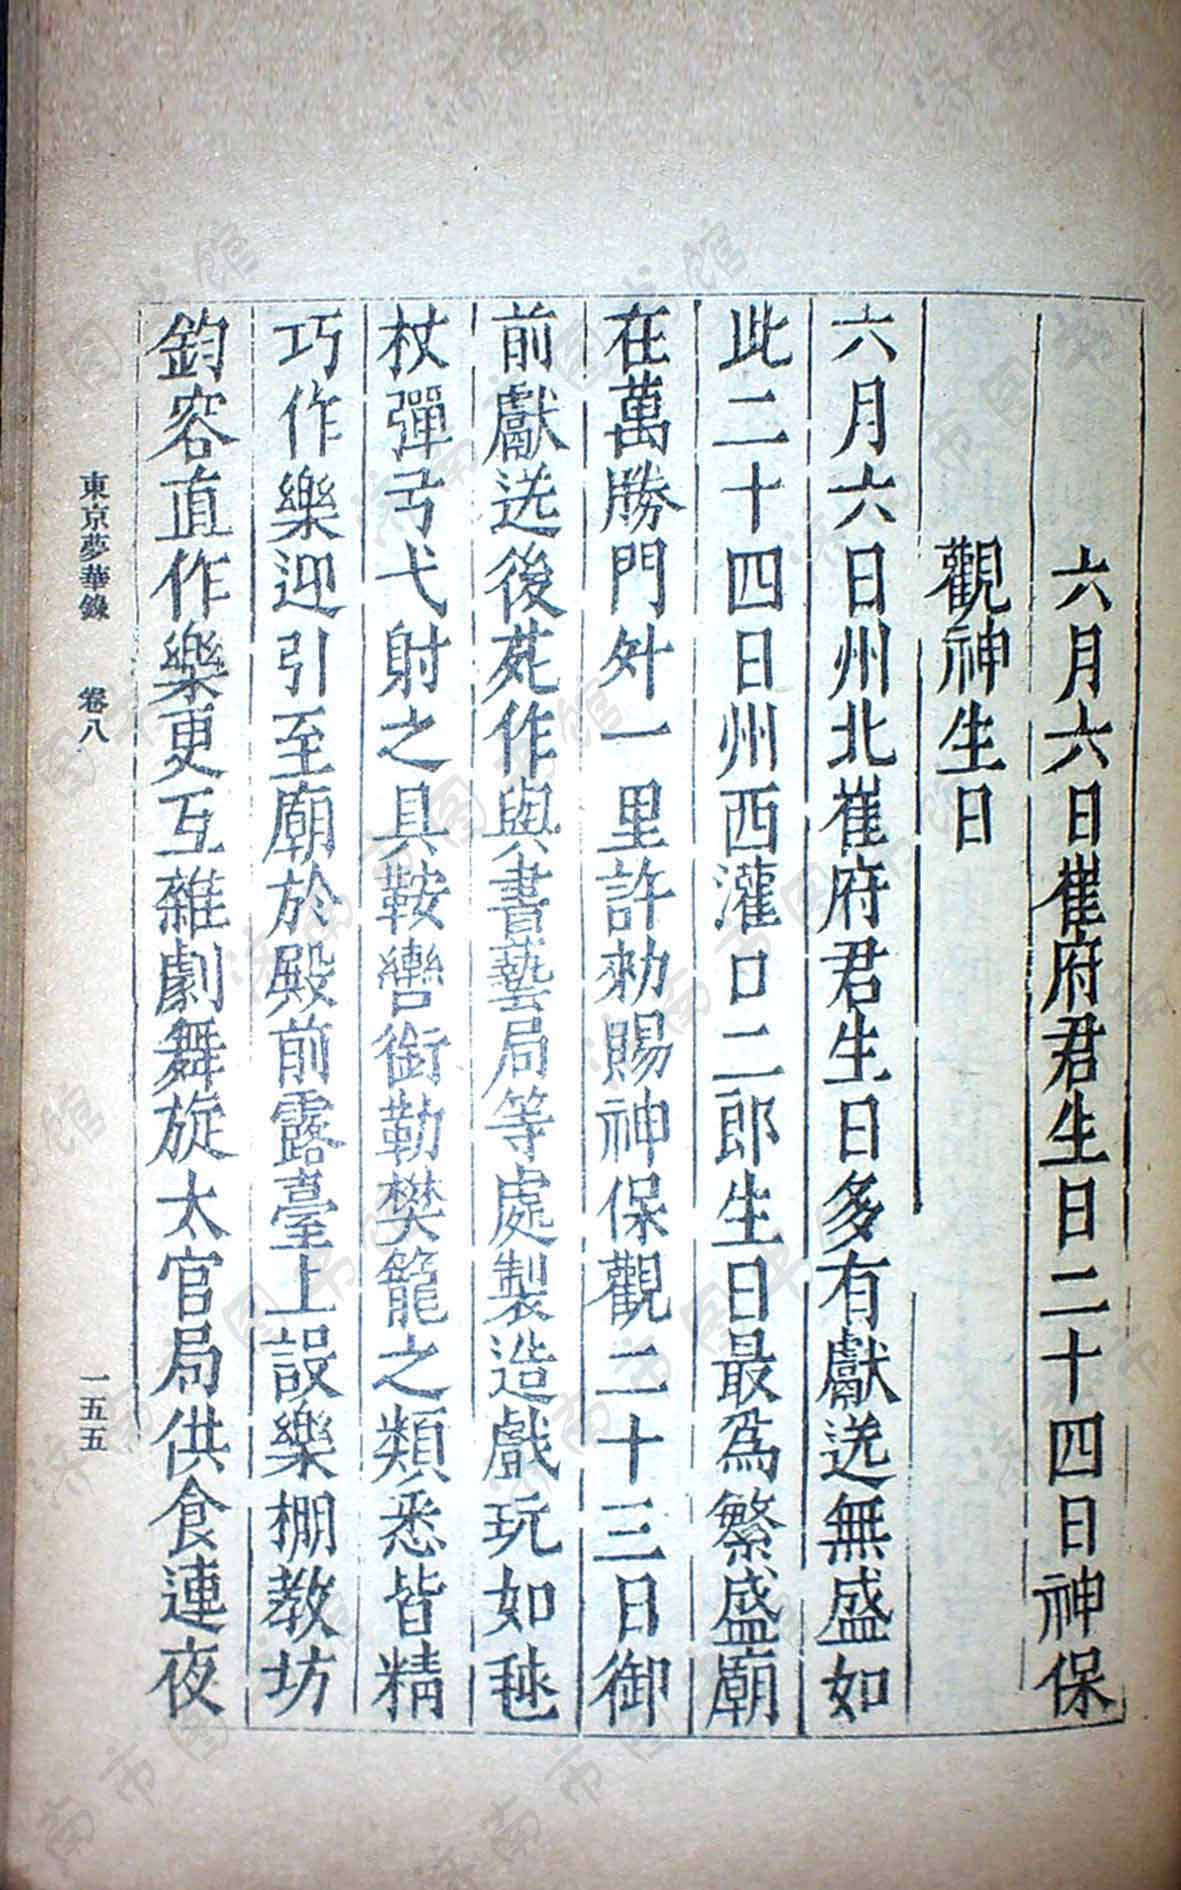 六月六日崔府君生日二十四日神保
觀神生日
六月六日州北崔府君生日多有獻送無盛如
此二十四日州西灌口二郎生日最爲繁盛廟
在萬勝門外一里許勑賜神保觀二十三日御
前獻送後苑作與書藝局等處製造戲玩如毬
杖彈弓弋射之具鞍轡銜勒樊籠之類悉皆精
巧作樂迎引至廟於殿前露臺上設樂棚教坊
鈞容直作樂更互雜劇舞旋太官局供食連夜
東京夢華錄 卷八 一五五
濟南市图书馆